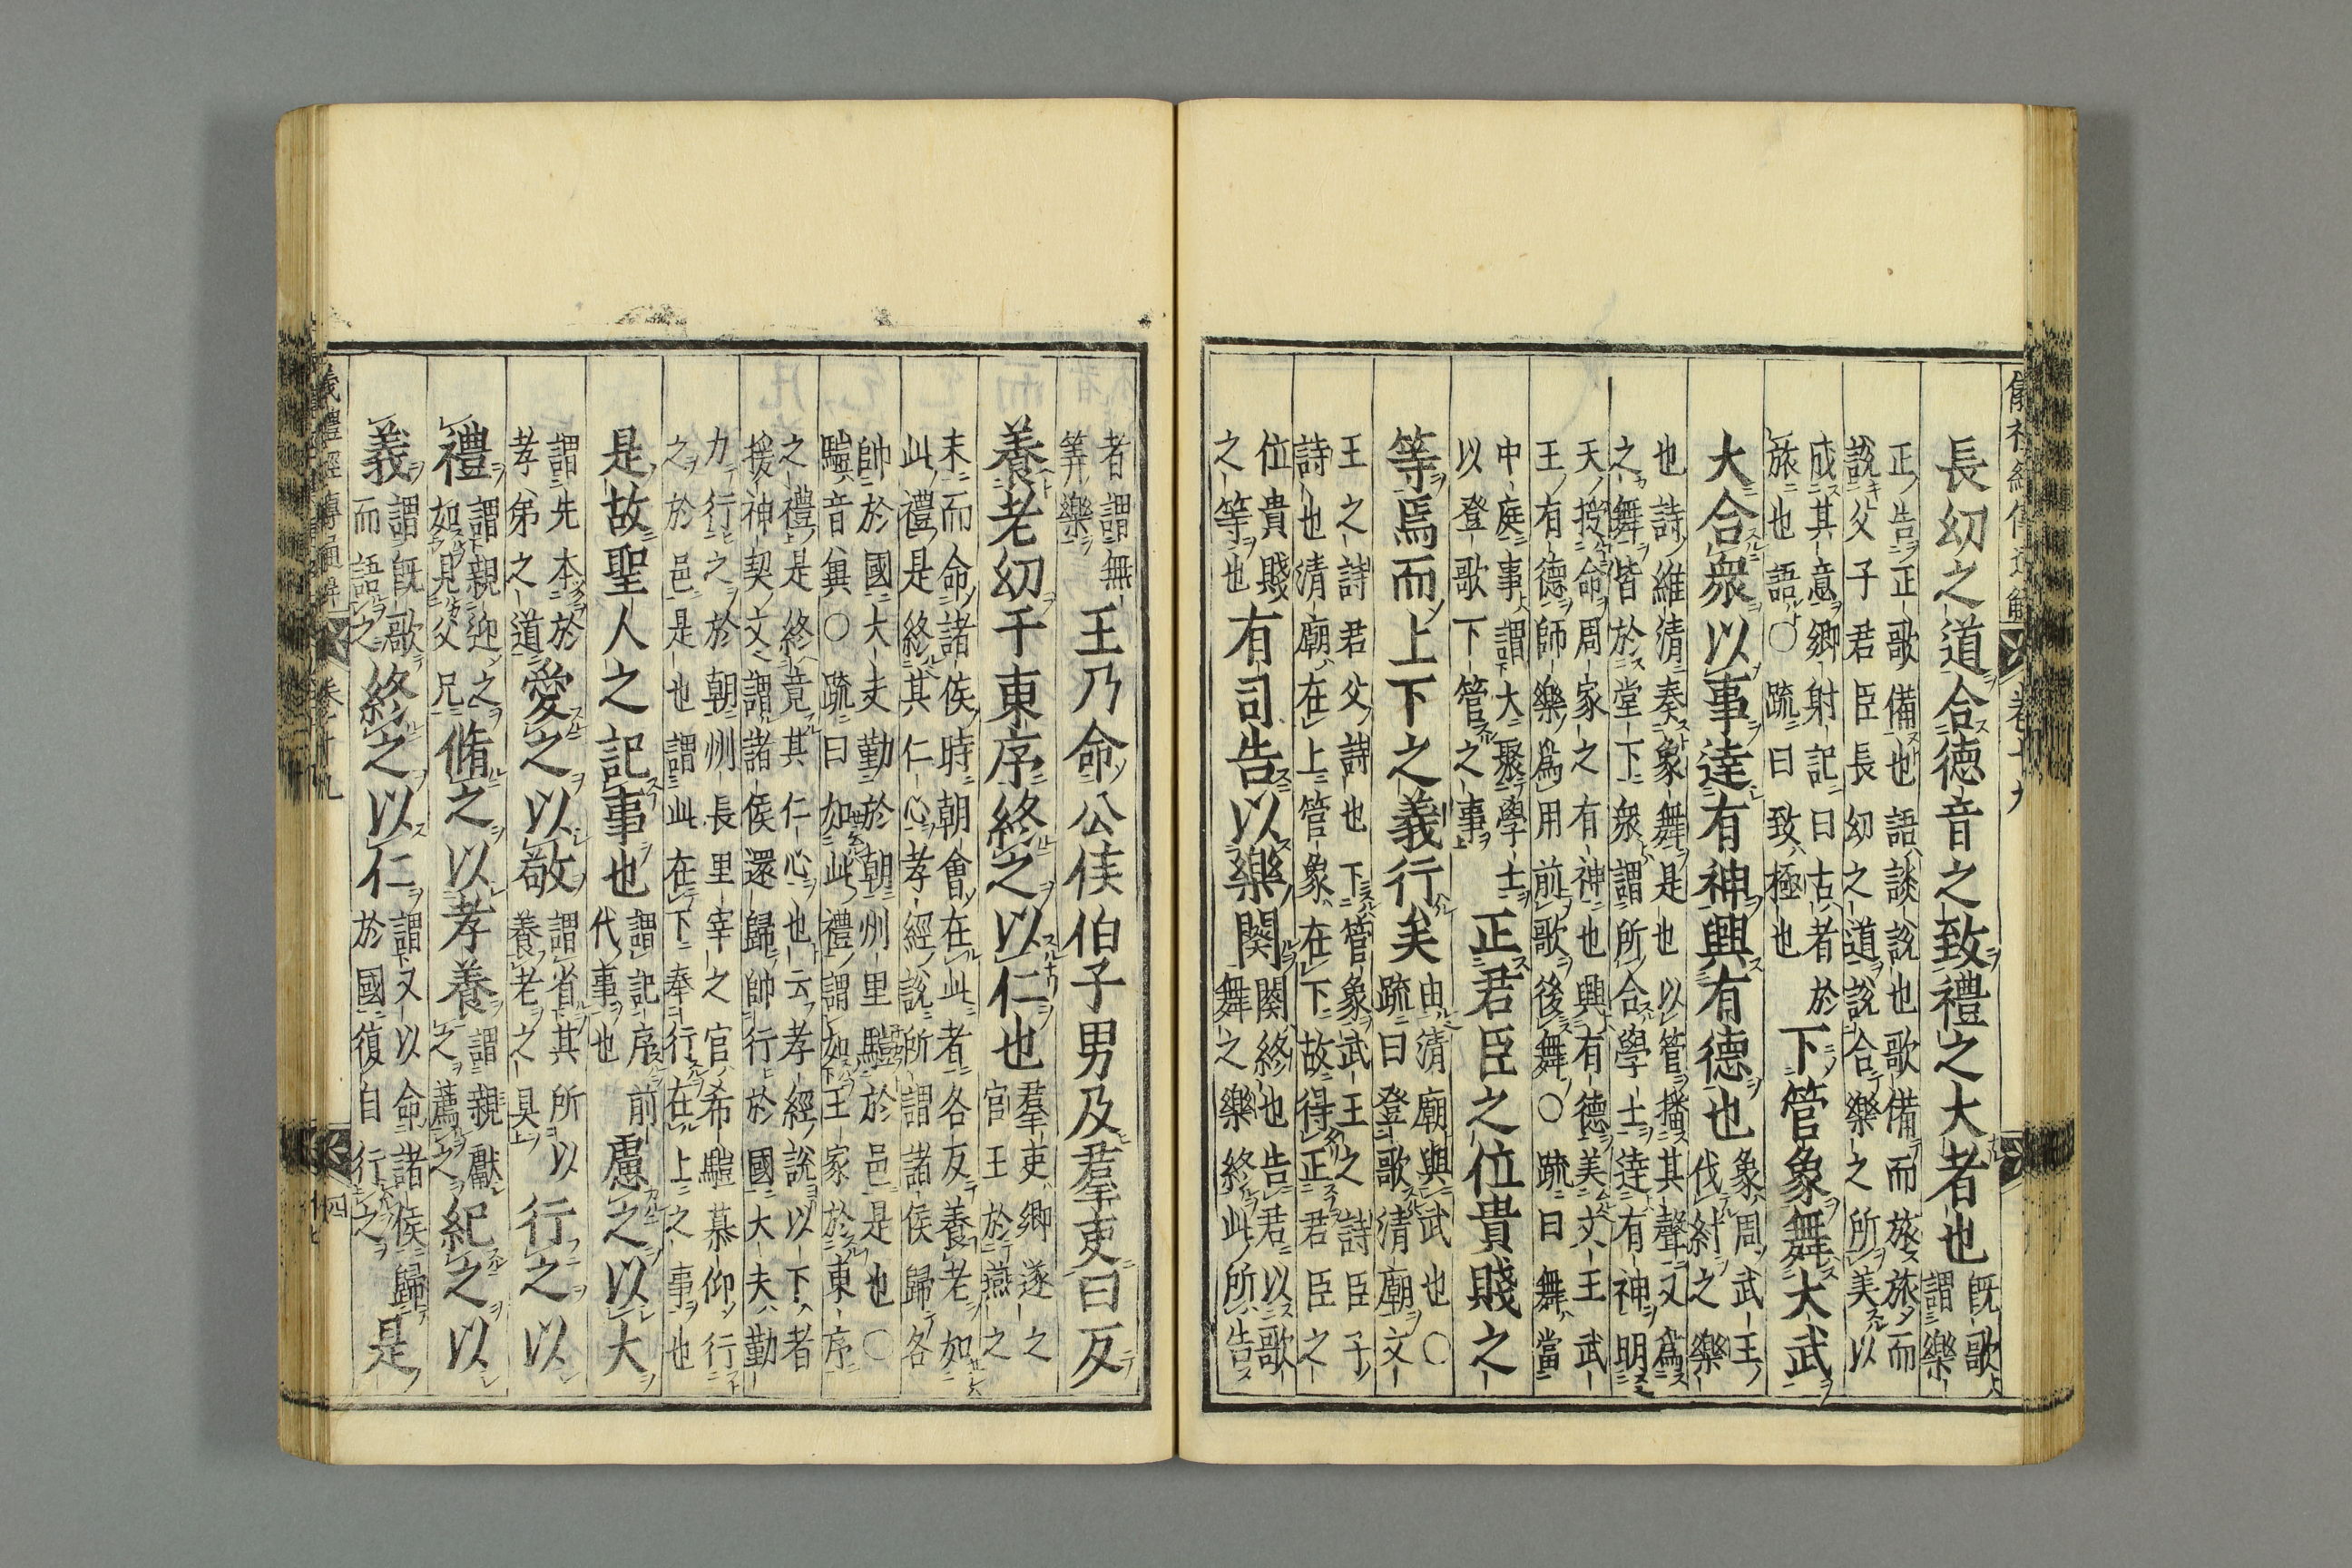 儀禮經傳通解 卷十九
長幼之道合德音之致禮之大者也既歌
謂樂
正告正歌備也語談說也歌備而旅旅而
說父子君臣長幼之道說合樂之所美以
成其意鄉射記曰古者於
旅也語〇疏曰致極也
下管象舞大武
大合衆以事達有神興有德也象周武王
伐紂之樂
也詩維清奏象舞是也以管播其聲又為
之舞皆於堂下衆謂所合學士達有神明
天授命周家之有神也興有德美文王武
王有德師樂為用前歌後舞〇疏曰舞當
中庭事謂大聚學士
以登歌下管之事
正君臣之位貴賤之
等焉而上下之義行矣由清廟與武也〇
疏曰登歌清廟文
王之詩君父詩也下管象武王之詩臣子
詩也清廟在上管象在下故得正君臣之
位貴賤
之等也
有司告以樂闋闋終也告君以歌
舞之樂終此所告
者謂無
筭樂
王乃命公侯伯子男及羣吏曰反
養老幼于東序終之以仁也羣吏鄉遂之
官王於燕之
末而命諸侯時朝會在此者各反養老如
此禮是終其仁心孝經說所謂諸侯歸各
帥於國大夫勤於朝州里驥於邑是也〇
驥音冀〇疏曰如此禮謂如王家於東序
之禮是終竟其仁心也云孝經說以下者
援神契文謂諸侯還歸帥行於國大夫勤
力行之於朝州長里宰之官希驥慕仰行
之於邑是也謂此在下奉行在上之事也
是故聖人之記事也謂記序前
代事也
慮之以大
謂先本於
孝弟之道
愛之以敬謂省其所以
養老之具
行之以
禮謂親迎之
如見父兄
脩之以孝養謂親獻
之薦之
紀之以
義謂既歌
而語之
終之以仁謂又以命諸侯歸
於國復自行之
是